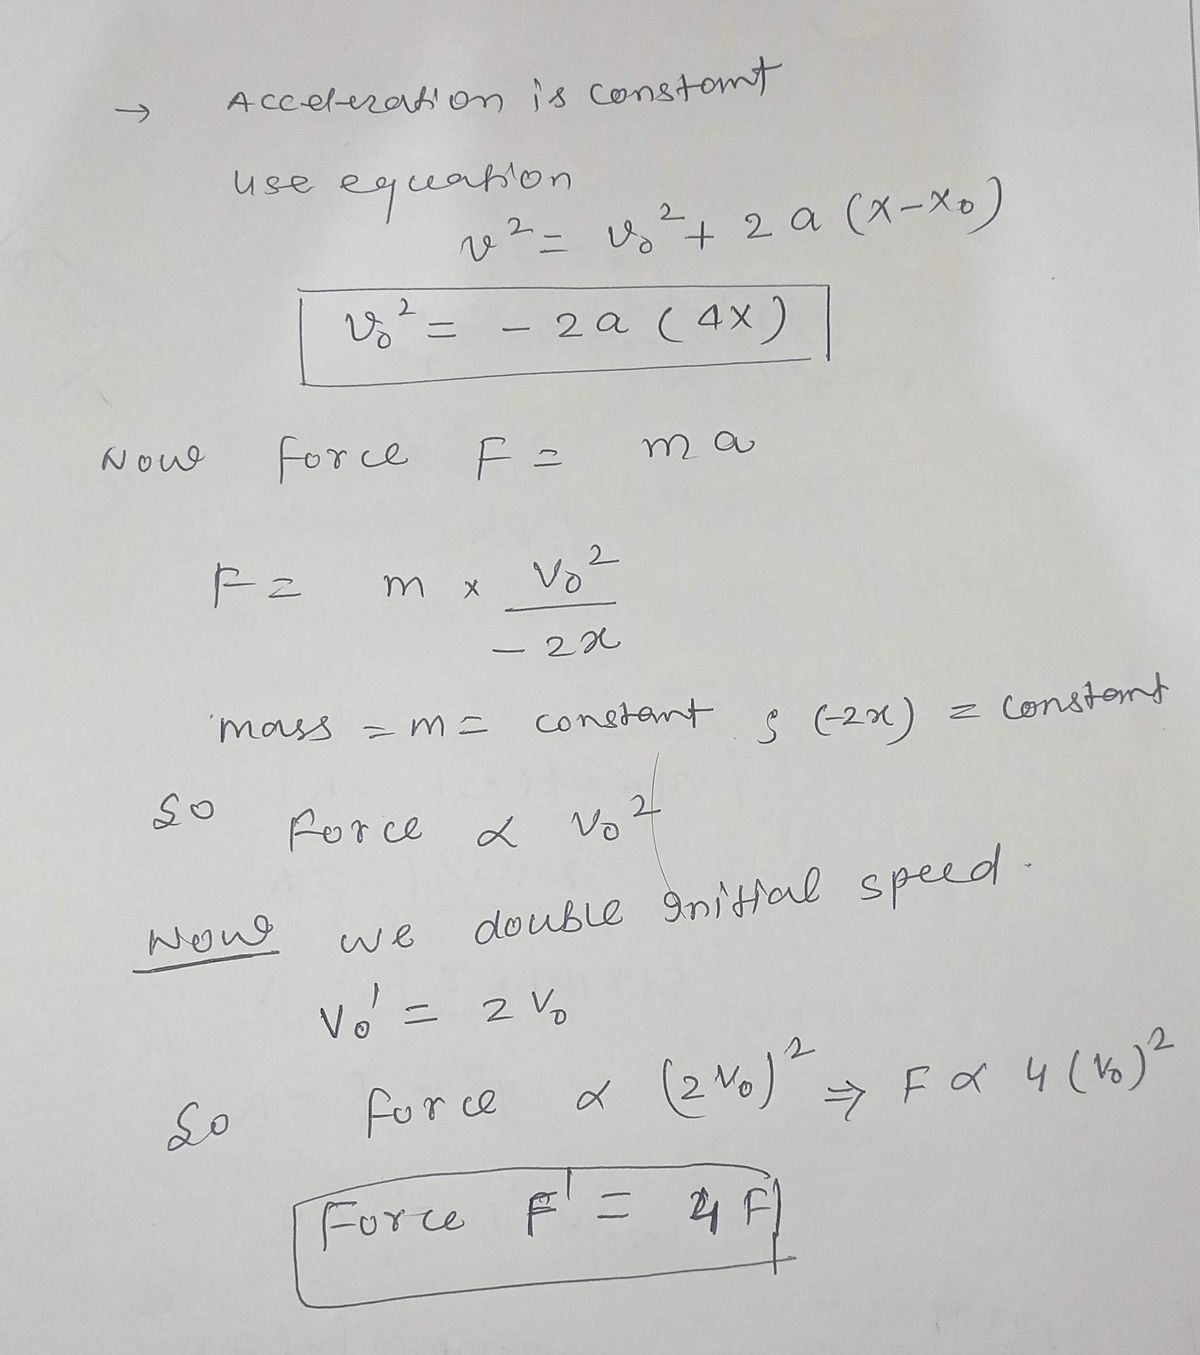 → Acceleration is constant
use equation
v² = v₀² + 2 a (x-x₀)
v₀² = - 2a (4x)
Now force F = ma
F = m × v₀² / -2x
mass = m = constant ; (-2x) = constant
So force ∝ v₀²
Now we double Initial speed.
v₀' = 2 v₀
So force ∝ (2v₀)² ⇒ F ∝ 4 (v₀)²
Force F' = 4 F